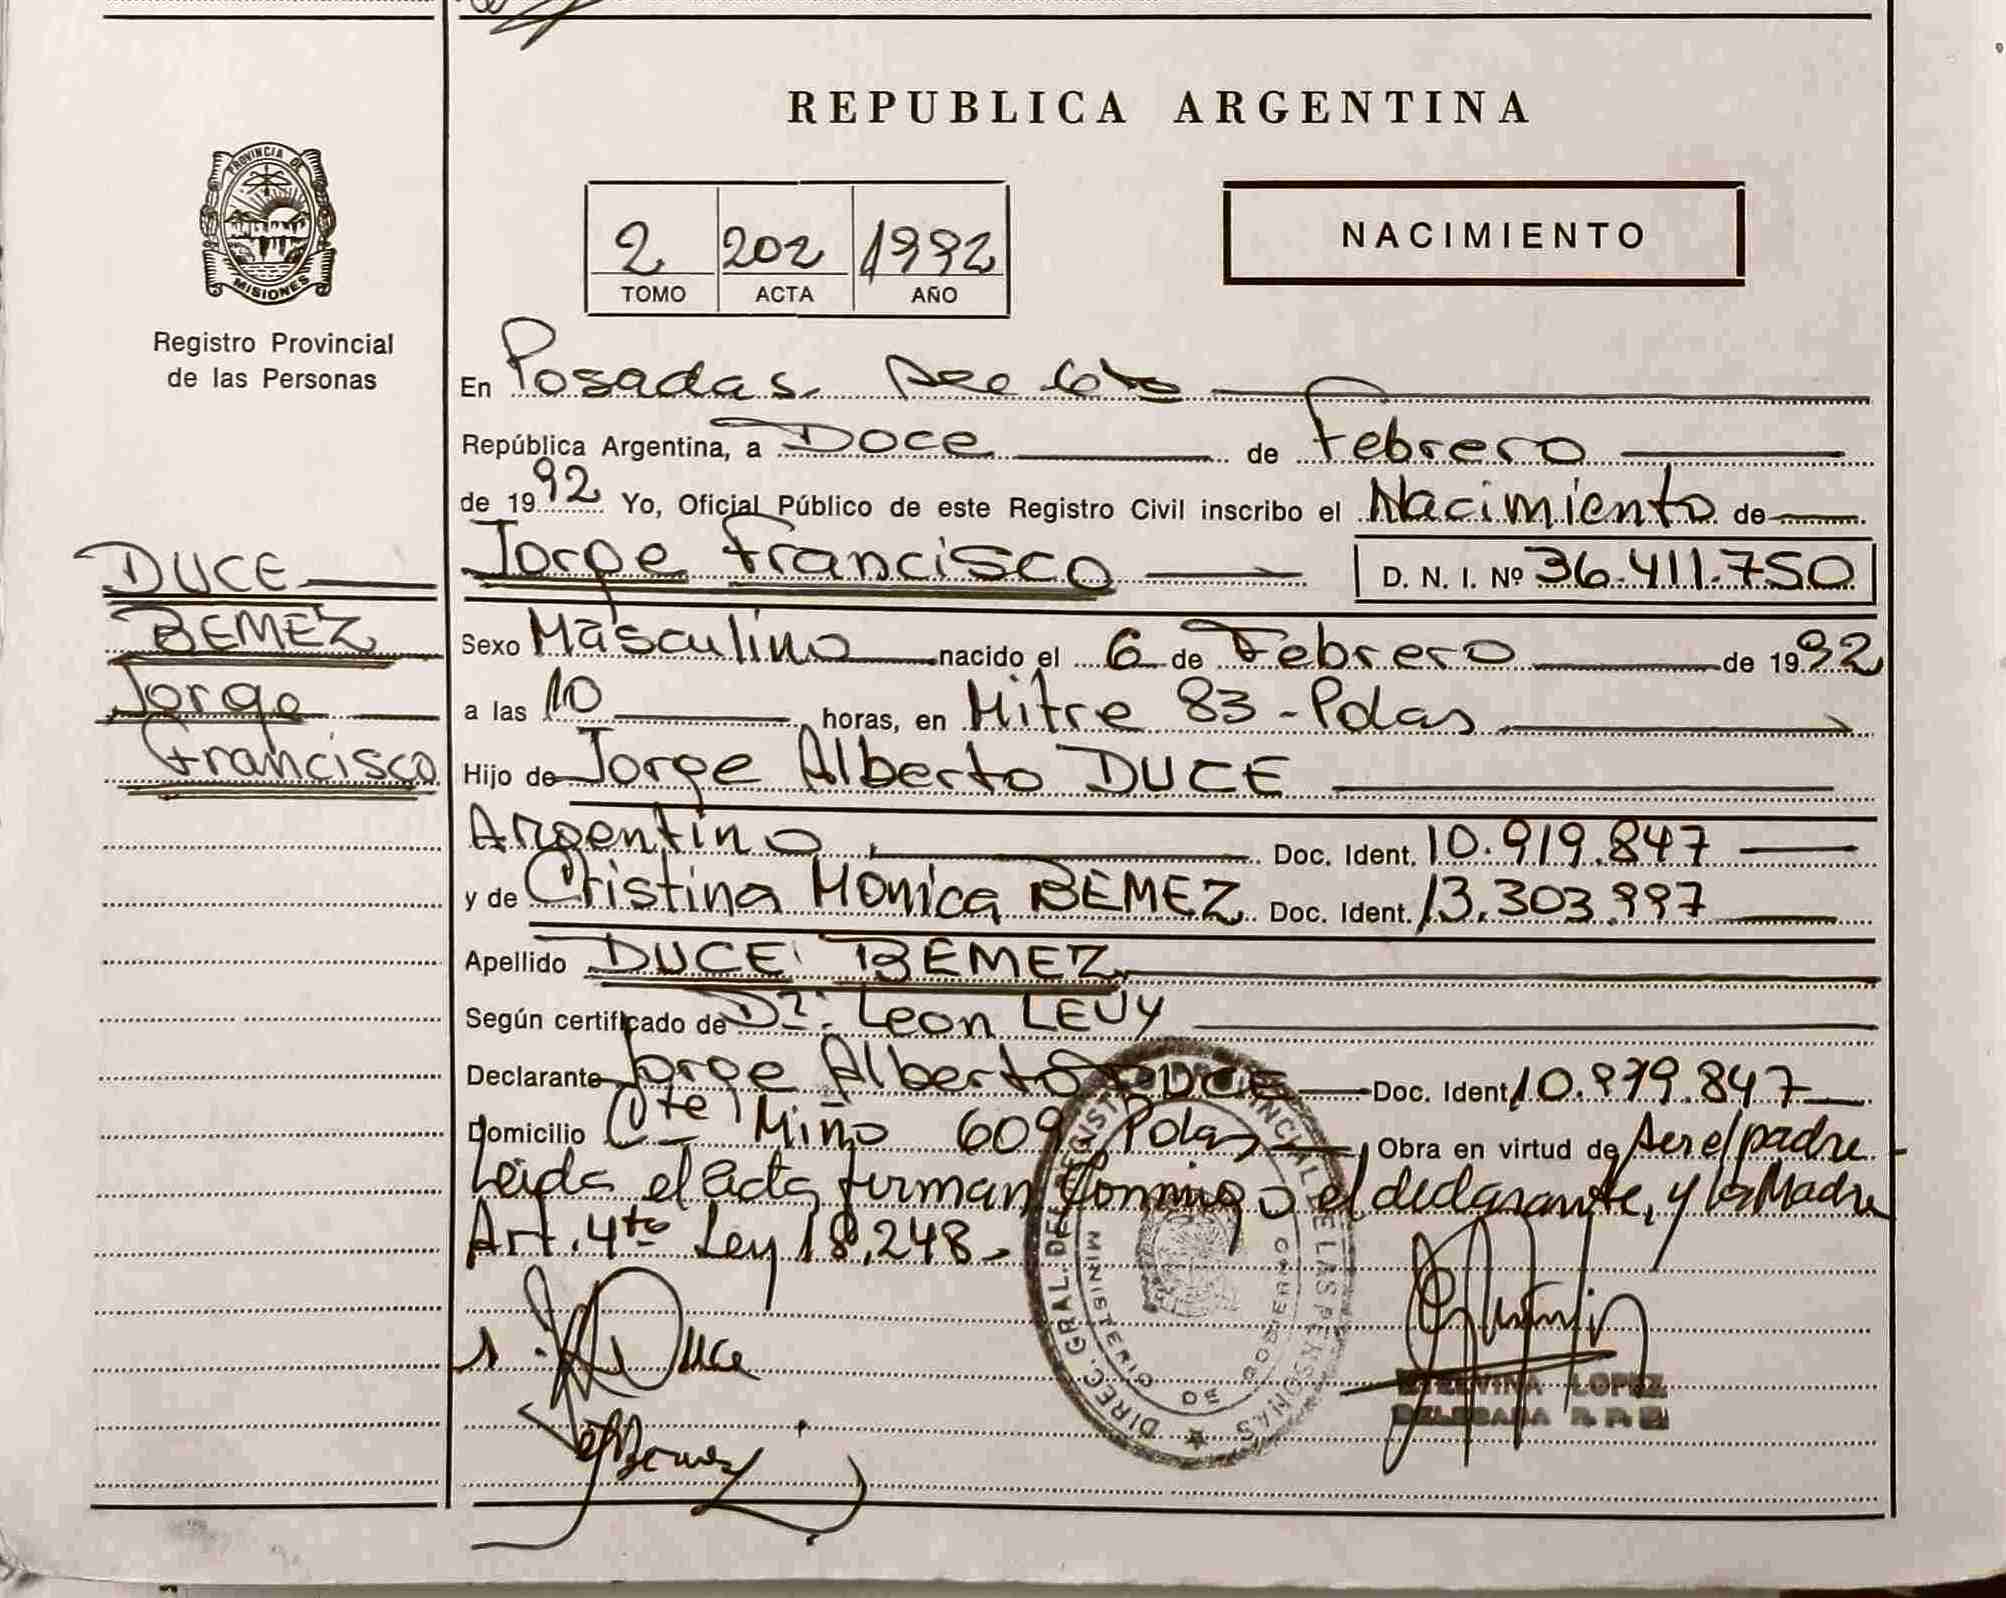 REPUBLICA ARGENTINA
PROVINCIA DE
MISIONES
Registro Provincial
de las Personas
2 202 1992
TOMO ACTA AÑO
NACIMIENTO
En Posadas,
República Argentina, a Doce de Febrero
de 1992 Yo, Oficial Público de este Registro Civil inscribo el Nacimiento de
Jorge Francisco D. N. I. Nº 36.411.750
DUCE
BEMEZ
Jorge
Francisco
Sexo Masculino nacido el 6 de Febrero de 1992
a las 10 horas, en Mitre 83 - Pdas
Hijo de Jorge Alberto DUCE
Argentino Doc. Ident. 10.919.847
y de Cristina Monica BEMEZ Doc. Ident. 13.303.997
Apellido DUCE BEMEZ
Según certificado de Dr. Leon LEVY
Declarante Jorge Alberto DUCE Doc. Ident. 10.979.847
Domicilio Cte Miño 609 Pdas Obra en virtud de ser el padre
Leida el acta firman conmigo el declarante, y la Madre
Art. 4to Ley 18,248.
DIREC. GRAL. DEL REGISTRO PROVINCIAL DE LAS PERSONAS
MINISTERIO DE GOBIERNO
Duce
Bemez
ETELVINA LOPEZ
DELEGADA R. P. P.